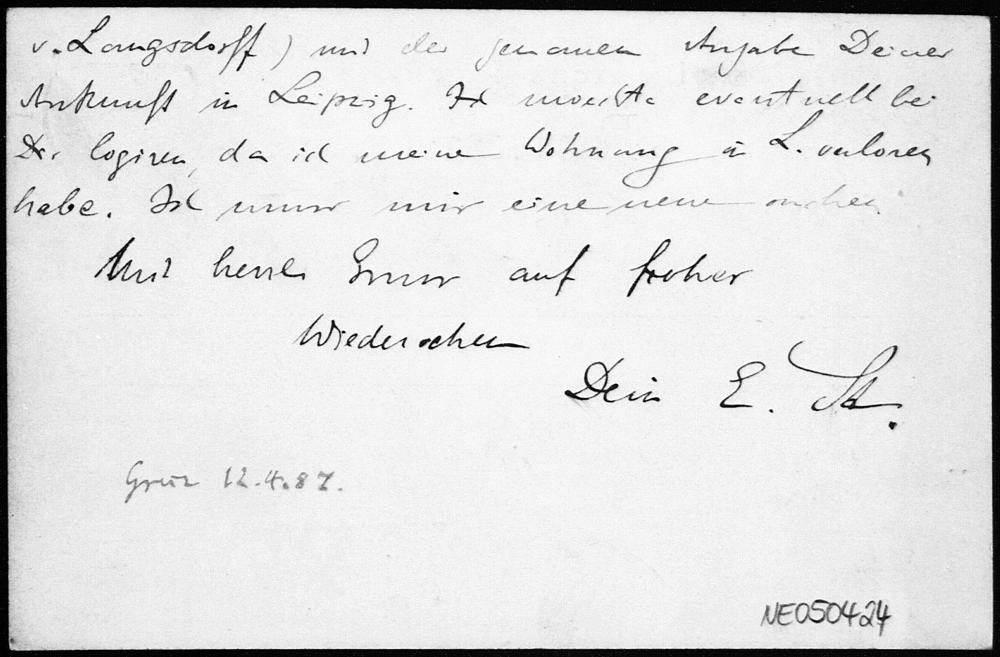 v. Langsdorff) mit der genauen Angabe Deiner
Ankunft in Leipzig. Ich moechte eventuell bei
Dir logiren, da ich meine Wohnung in L. verloren
habe. Ich muss mir eine neue suchen
Mit herzl. Gruss auf frohes
Wiedersehen
Dein E. St.
Graz 12.4.87.
NE050424